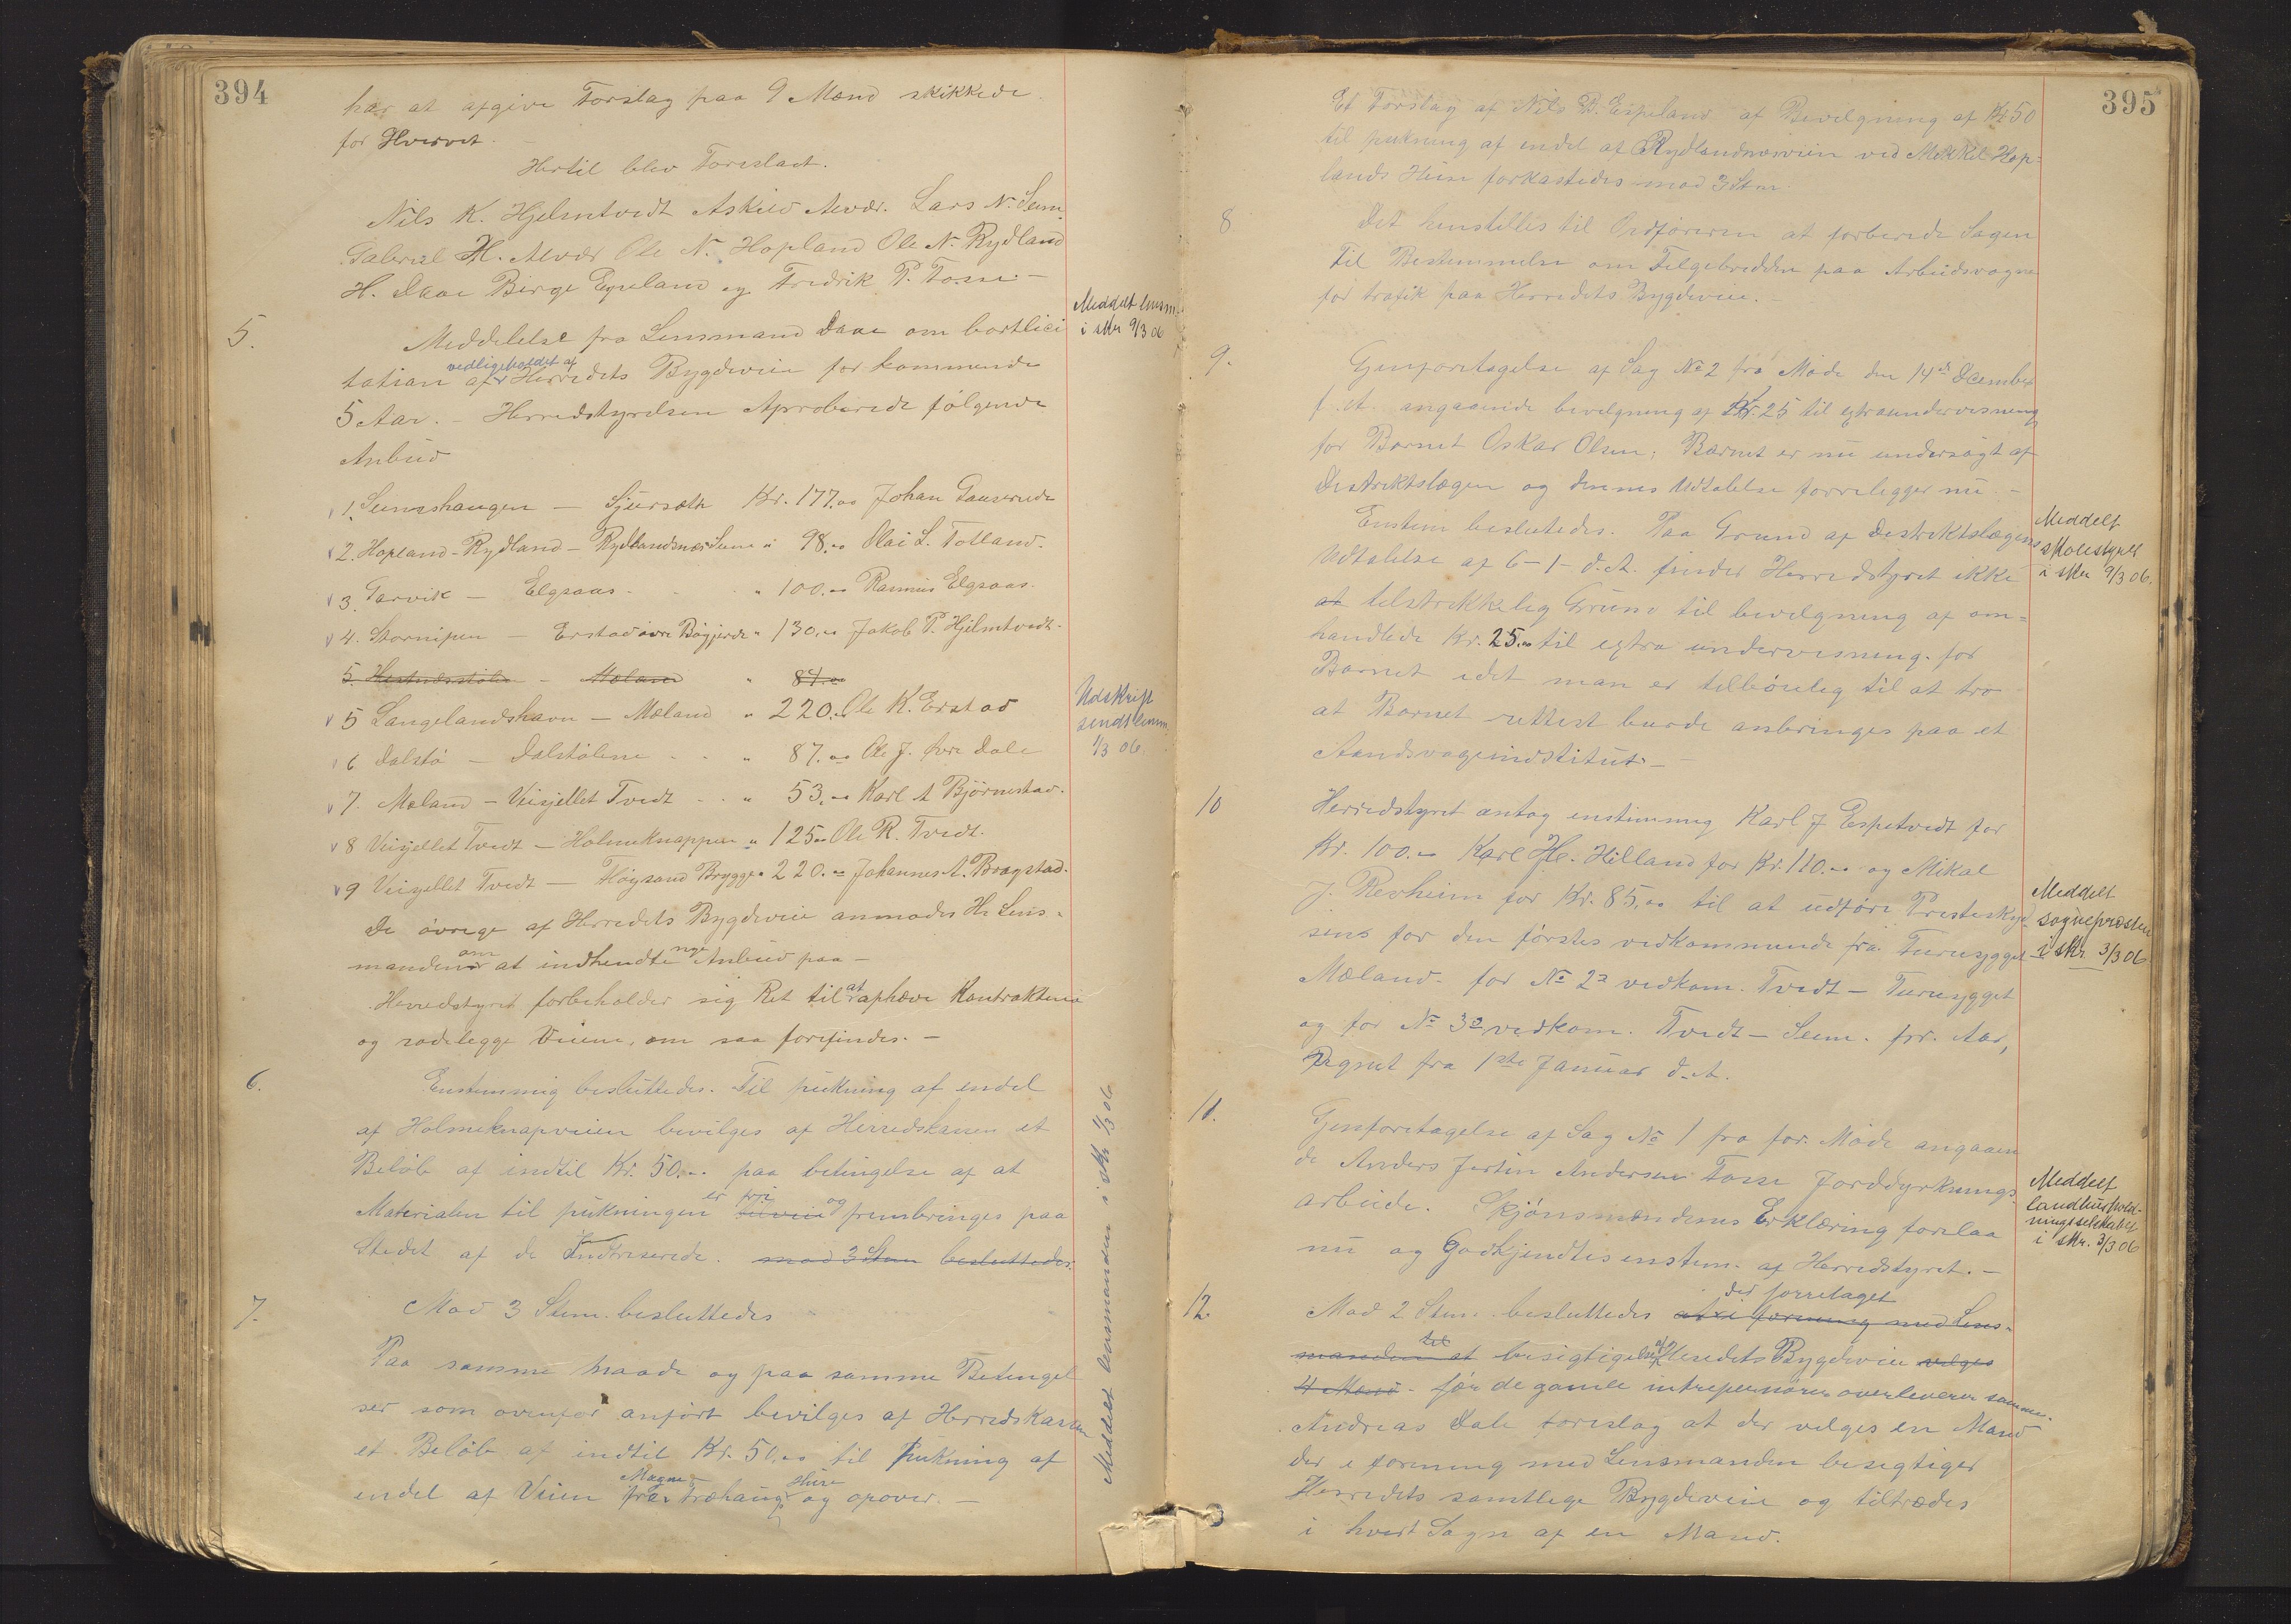 394
har at afgive Forslag paa 9 Mænd skikkede
for Hvervet.
Hertil blev Foreslaat.
Nils K. Hjelmtvedt Askild Alvær. Lars N. Seim
Gabriel H. Alvær Ole N. Hopland Ole N. Rydland
H. Daae Birge Espeland og Fredrik P. Fosse. -
5.
Meddelelse fra Lensmand Daae om bortlici
tation af vedligeholdet af Herredets Bygdeveie for kommende
5 Aar. - Herredstyrelsen Aproberede følgende
Anbud
Meddelt lensm.
i skr 9/3 06
1. Seimshaugen - Sjursæth Kr. 177.00 Johan Gauserude
2. Hopland-Rydland - Rydlandsnæs Seim " 98.00 Olai L. Totland.
3. Garvik - Elgraas " 100.00 Rasmus Elgraas.
4. Stornipen - Erstad øvre Bøgjerde " 130.00 Jakob P. Hjelmtvedt.
5. - Mæland " 84.00
5 Langelandshavn - Mæland " 220.00 Ole K. Erstad
6 Dalstø - Dalstølene " 87.00 Ole J. Dale
7. Mæland - Veisjellet Tvedt " 53.00 Karl A Bjørnestad.
8 Veisjellet Tvedt - Holmeknappen " 125.00 Ole R. Tvedt.
9 Veisjellet Tvedt - Høgsand Brygge " 220.00 Johannes A. Bragstad.
Udskrift
sendt lensm.
1/3 06.
De øvrige af Herredets Bygdeveie anmodes Hr Lens-
manden om at indhendte nye Anbud paa -
Herredstyret forbeholder sig Ret til at ophæve Kontrakterne
og rodelegge Veiene, om saa forefindes. -
6.
Enstemmig besluttedes. Til pukning af endel
af Holmeknapveien bevilges af Herredskassen et
Beløb af indtil Kr. 50.00 paa betingelse af at
Materialen til pukningen er fri og frembringes paa
Stedet af de Indtreserede. mod 3 Stem besluttedes.
7.
Mod 3 Stem. besluttedes
Paa samme maade og paa samme Betingel
ser som ovenfor anført bevilges af Herredskassen
et Beløb af indtil Kr. 50.00 til Pukning af
endel af Veien fra Magne Træhaug og opover. -
Meddelt lensmanden i skr 1/3 06
395
Et Forslag af Nils B. Espeland af Bevilgning af Kr 50
til pukning af endel af Rydlandsnæsveien ved Mikkel Hop-
lands Huse forkastedes mod 3 Stem.
8
Det henstilles til Ordføreren at forberede Sagen
til Bestemmelse om Felgebredden paa Arbeidsvogne
for trafik paa Herredets Bygdeveie. -
9.
Gjenforetagelse af Sag No 2 fra Møde den 14de December
f. A. angaaende bevilgning af Kr. 25 til extraundervisning
for Barnet Oskar Olsen; Barnet er nu undersøgt af
Destriktslægen og dennes Udtalelse forrelegger nu. -
Enstem beslutedes. Paa Grund af Destriktslægens
Udtalelse af 6-1- d. A. finder Herredstyret ikke
at telstrekkelig Grund til bevilgning af om-
handlede Kr. 25.00 til extra undervisning. for
Barnet idet man er tilbøielig til at tro
at Barnet rettest burde anbringes paa et
Aandsvageindstitut. -
Meddelt
skolestyret
i skr 9/3 06.
10
Herredstyret antog enstimmig Karl J Espetvedt for
Kr. 100.00 Karl H. Hilland for Kr. 110.00 og Mikal
J. Revheim for Kr. 85.00 til at udføre Presteskyd
sens for den førstes vedkommende fra Furuygget -
Mæland. for No 2s vedkom. Tvedt - Furuygget
og for No 3s vedkom. Tvedt - Seim. pr. Aar,
regnet fra 1ste Januar d. A.
Meddelt
sognepresten
i skr. 3/3 06
11.
Gjenforetagelse af Sag No 1 fra for. Møde angaaen
de Anders Jertin Andersen Fosse Jorddyrknings
arbeide. Skjønsmændenes Erklæring forelaa
nu og Godkjendtes enstem. af Herredstyret. -
Meddelt
landhushold-
ningsselskabet
i skr. 3/3 06
12
Mod 2 Stem. besluttedes at i forening med Lens-
der forretaget
manden at til besigtigelse af Heredets Bygdeveie velges
4 Mænd. før de gamle intrepenører overleverer samme.
Andreas Dale foreslog at der velges en Mand
der i forening med Lensmanden besigtiger
Herredets samtlege Bygdeveie og tiltrædes
i hvert Sogn af en Mand.